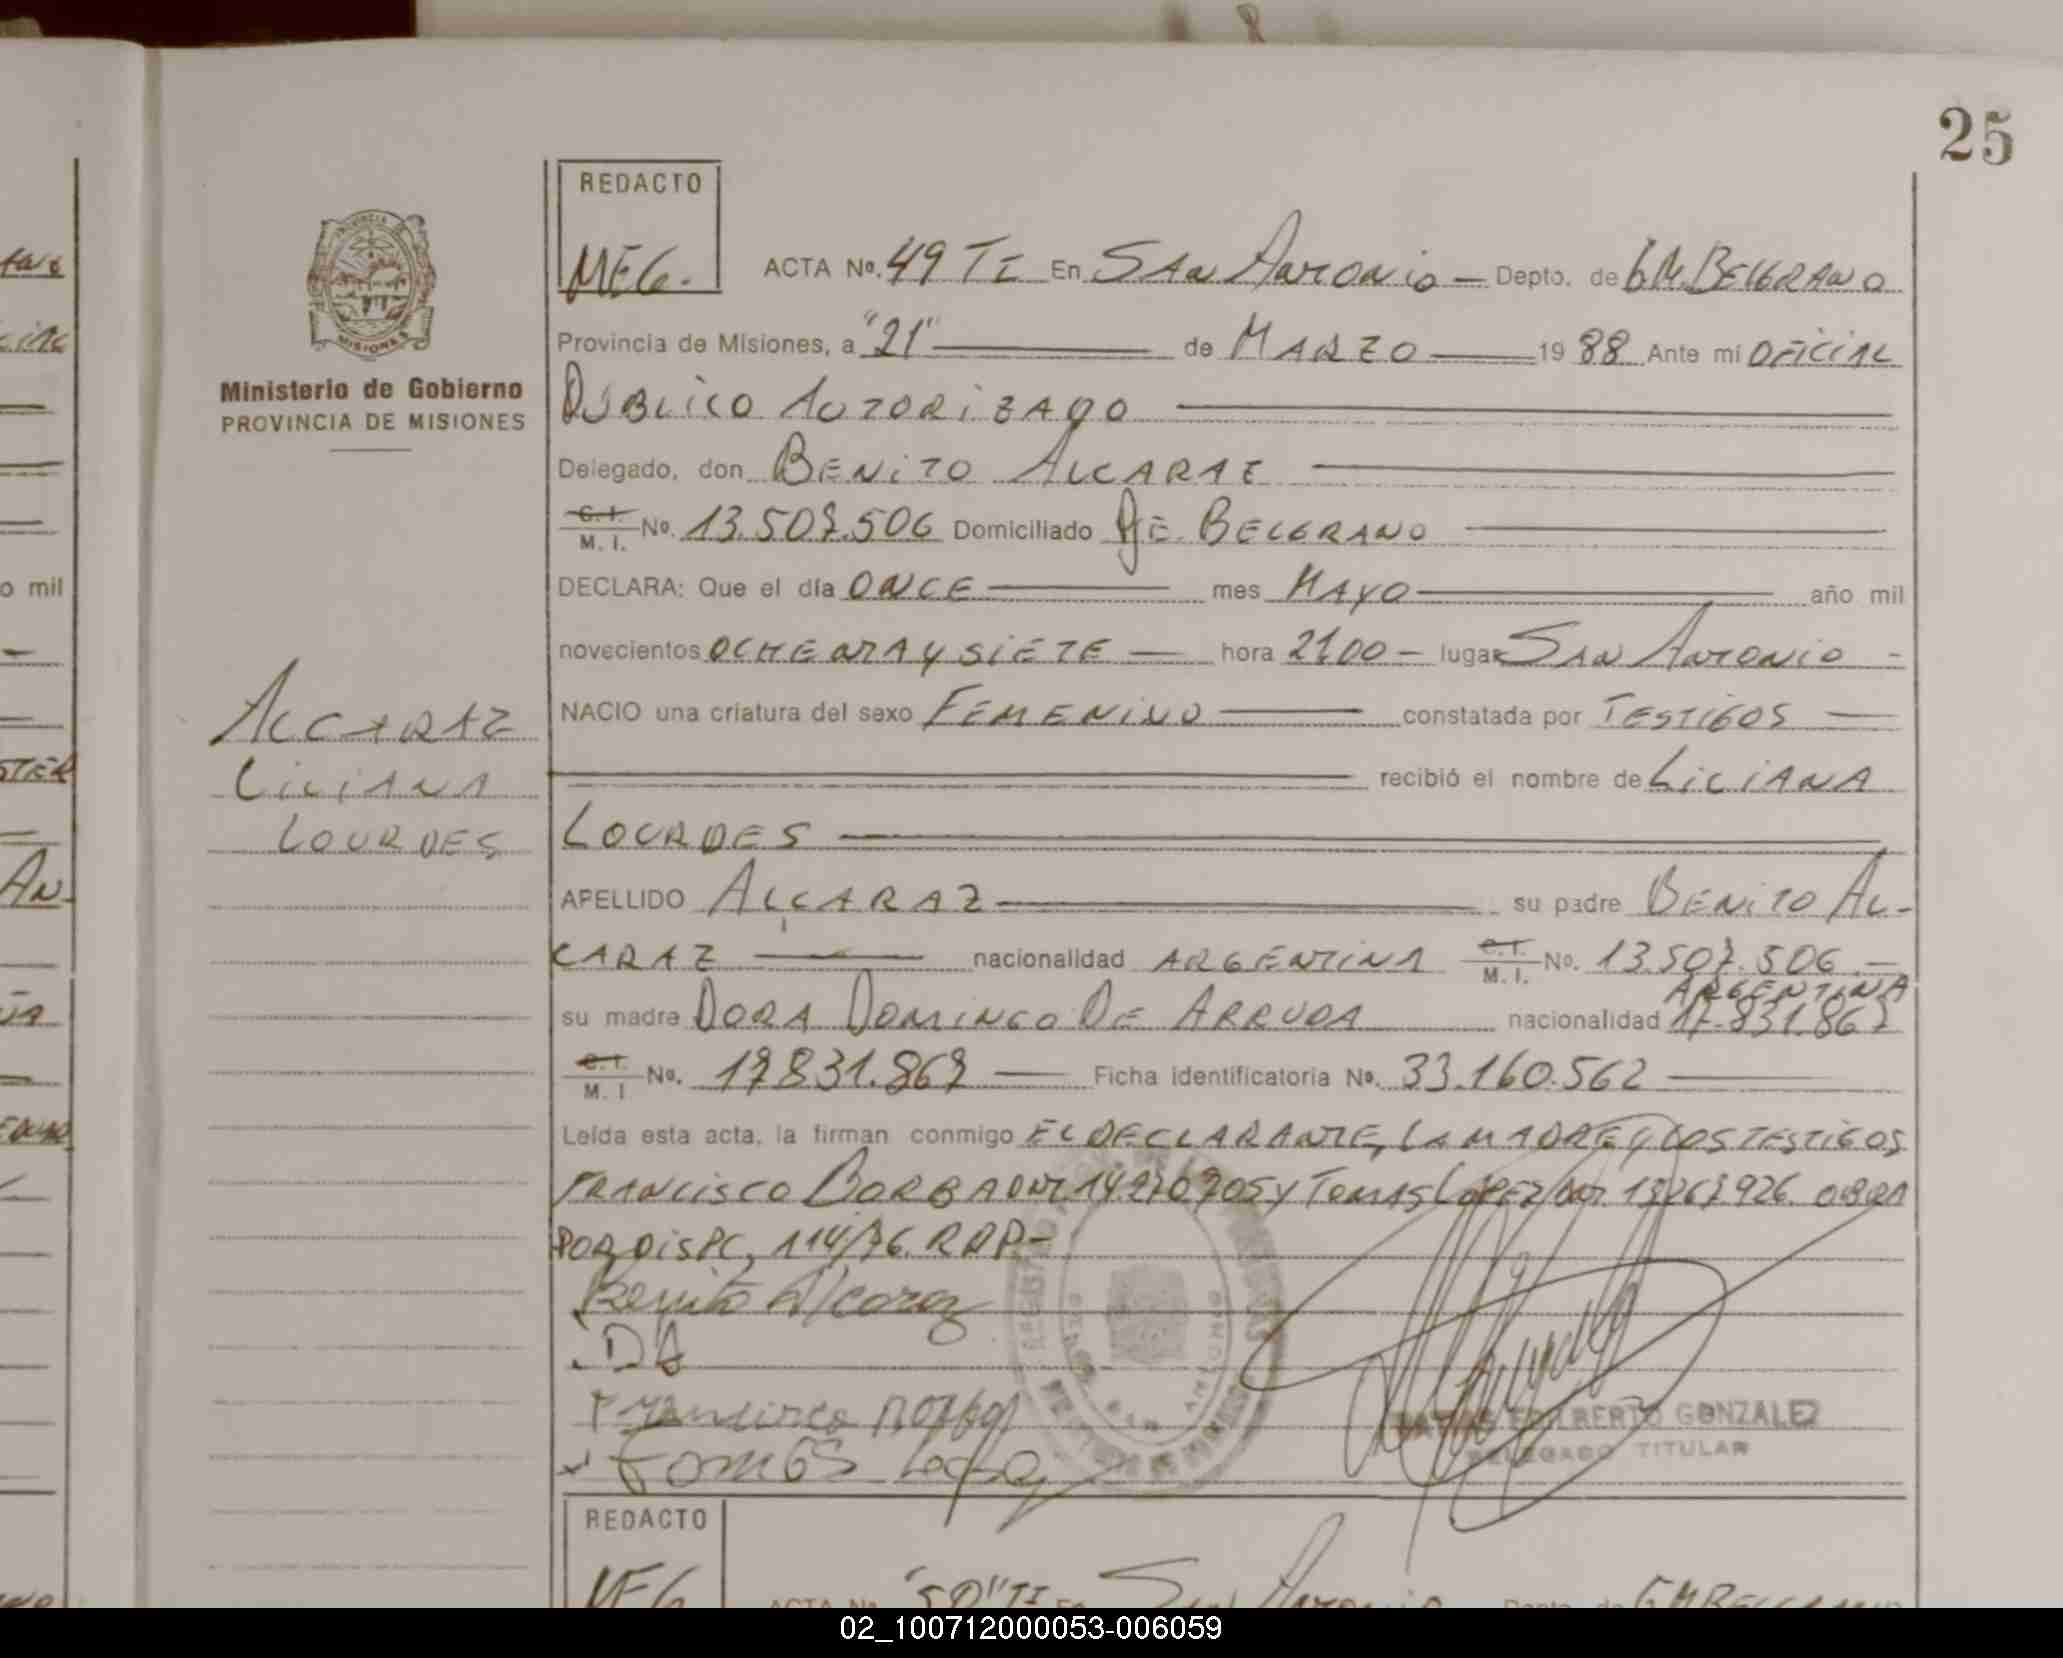 25
REDACTO
MEG.
ACTA Nº. 49 TI En San Antonio — Depto. de G.M. Belgrano
Provincia de Misiones, a "21" de Marzo 1988 Ante mi Oficial
Publico Autorizado
Ministerio de Gobierno
PROVINCIA DE MISIONES
Delegado, don Benito Alcaraz
C.I. M.I. Nº. 13.507.506 Domiciliado Pje. Belgrano
DECLARA: Que el día Once mes Mayo año mil
novecientos ochenta y siete — hora 2100 – lugar San Antonio -
NACIO una criatura del sexo Femenino constatada por Testigos
recibió el nombre de Liliana
Lourdes
Alcaraz
Liliana
Lourdes
APELLIDO Alcaraz su padre Benito Al-
caraz nacionalidad Argentina C.I. M.I. Nº. 13.507.506.—
su madre Dora Domingo De Arruda nacionalidad Argentina 17.831.867
C.I. M.I Nº. 17831.867 — Ficha identificatoria Nº. 33.160.562
Leída esta acta, la firman conmigo el declarante, la madre y los testigos
Francisco Borba DNI. y Tomas Lopez DNI. 13267926. obra
por Dispc. 114/76. RDP-
Benito Alcaraz
DA
Tomás
EDILBERTO GONZALEZ
DELEGADO TITULAR
REDACTO
MEG
ACTA Nº. "50" TI En San Antonio Depto. de G.M. Belgrano
02_100712000053-006059